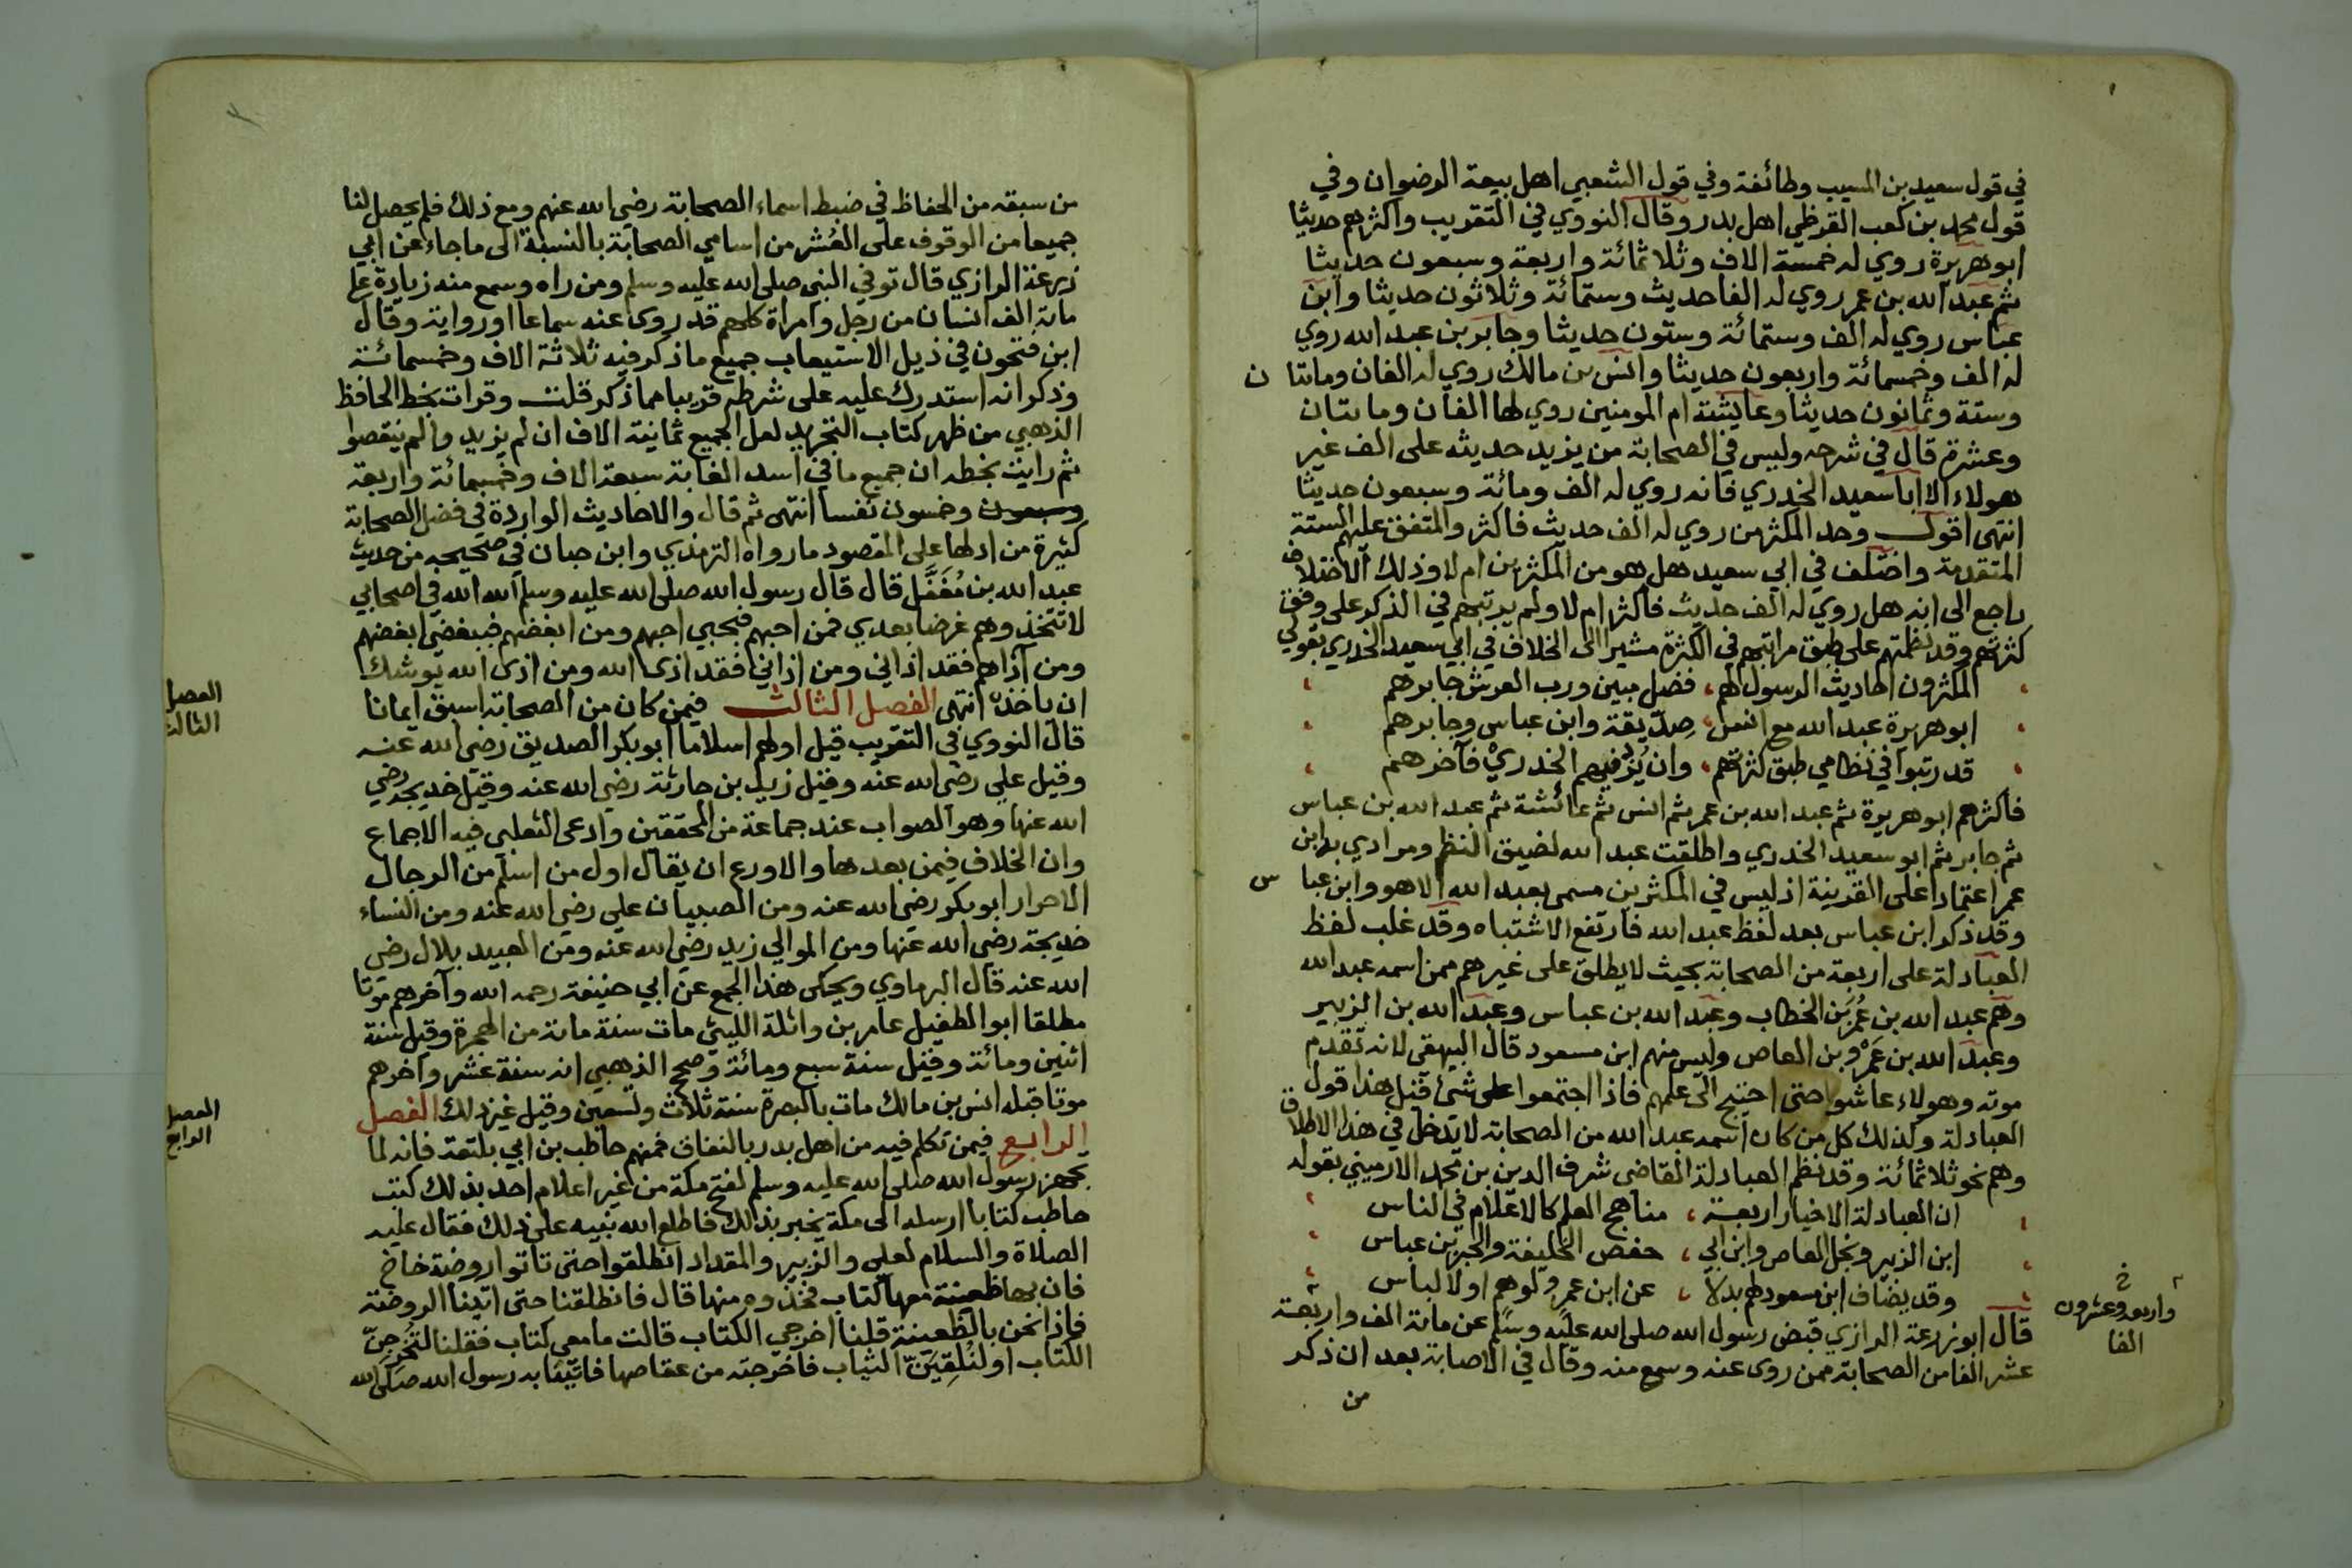 في قول سعيد بن المسيب وطائفة وفي قول الشعبي اهل بيعة الرضوان وفي
قول محمد بن كعب القرظي اهل بدر وقال النووي في التقريب واكثرهم حديثا
ابو هريرة روي له خمسة الاف وثلاثمائة واربعة وسبعون حديثا
ثم عبد الله بن عمر روي له الفا حديث وستمائة وثلاثون حديثا وابن
عباس روي له الف وستمائة وستون حديثا وجابر بن عبد الله روي
له الف وخمسمائة واربعون حديثا وانس بن مالك روي له الفان ومايتا ن
وستة وثمانون حديثا وعايشة ام المومنين روي لها الفان ومايتان
وعشرة قال في شرحه وليس في الصحابة من يزيد حديثه على الف غير
هولاء الا ابا سعيد الخدري فانه روي له الف ومائة وسبعون حديثا
انتهى اقول وحد المكثر من روي له الف حديث فاكثر والمتفق عليهم الستة
المتقدمة واختلف في ابي سعيد هل هو من المكثرين ام لا وذلك الاختلاف
راجع الى انه هل روي له الف حديث فاكثر ام لا ولم يرتبهم في الذكر على وفق
كثرتهم وقد نظمتهم على طبق مراتبهم في الكثرة مشيرا الى الخلاف في ابي سعيد الخدري بقولي
المكثرون احاديث الرسول لهم ، فضل مبين ورب العرش جابرهم
ابو هريرة عبد الله مع انس ، صدّيقة وابن عباس وجابرهم
قد رتبوا في نظامي طبق كثرتهم ، وان يُزد فيهم الخدريْ فآخرهم
فاكثرهم ابو هريرة ثم عبد الله بن عمر ثم انس ثم عائشة ثم عبد الله بن عباس
ثم جابر ثم ابو سعيد الخدري واطلقت عبد الله لضيق النظم ومرادي به ابن
عمر اعتمادا على القرينة اذ ليس في المكثرين مسمى بعبد الله الا هو وابن عبا س
وقد ذكر ابن عباس بعد لفظ عبد الله فارتفع الاشتباه وقد غلب لفظ
العبادلة على اربعة من الصحابة بحيث لا يطلق على غيرهم ممن اسمه عبد الله
وهم عبد الله بن عُمَر بن الخطاب وعبد الله بن عباس وعبد الله بن الزبير
وعبد الله بن عَمْرو بن العاص وليس منهم ابن مسعود قال البيهقي لانه تقدم
موته وهولاء عاشوا حتى احتيج الى علمهم فاذا اجتمعوا على شئ قيل هذا قول
العبادلة وكذلك كل من كان اسمه عبد الله من الصحابة لا يدخل في هذا الاطلاق
وهم نحو ثلاثمائة وقد نظم العبادلة القاضي شرف الدين بن محمد الارميني بقوله
ان العبادلة الاخيار اربعة ، مناهج العلم كالاعلام في الناس
ابن الزبير ونجل العاص وابن ابي ، حفص الخليفة والحبر بن عباس
وقد يضاف ابن مسعود لهم بدلا ، عن ابن عمرو لوهم او لالباس
قال ابو زرعة الرازي قبض رسول الله صلى الله عليه وسلم عن مائة الف واربعة
عشر الفا من الصحابة ممن روى عنه وسمع منه وقال في الاصابة بعد ان ذكر
من
خ
واربعه وعشرون
الفا
من سبقه من الحفاظ في ضبط اسماء الصحابة رضي الله عنهم ومع ذلك فلم يحصل لنا
جميعا من الوقوف على العُشر من اسامي الصحابة بالنسبة الى ما جاء عن ابي
زرعة الرازي قال توفي النبي صلى الله عليه وسلم ومن راه وسمع منه زيادة على
مائة الف انسان من رجل وامراة كلهم قد روى عنه سماعا او رواية وقال
ابن فتحون في ذيل الاستيعاب جميع ما ذكر فيه ثلاثة الاف وخمسمائة
وذكر انه استدرك عليه على شرطه قريبا مما ذكر قلت وقرات بخط الحافظ
الذهبي من ظهر كتاب التجريد لعل الجميع ثمانية الاف ان لم يزيدوا لم ينقصوا
ثم رايت بخطه ان جميع ما في اسد الغابة سبعة الاف وخمسمائة واربعة
وسبعون وخمسون نفسا انتهى ثم قال والاحاديث الواردة في فضل الصحابة
كثيرة من ادلها على المقصود ما رواه الترمذي وابن حبان في صحيحه من حديث
عبد الله بن مُغَفَّل قال قال رسول الله صلى الله عليه وسلم الله الله في اصحابي
لا تتخذوهم غرضا بعدي فمن احبهم فبحبي احبهم ومن ابغضهم فببغضي ابغضهم
ومن آذاهم فقد اذاني ومن اذاني فقد اذى الله ومن اذى الله يوشك
ان ياخذه انتهى الفصل الثالث فيمن كان من الصحابة اسبق ايمانا
قال النووي في التقريب قيل اولهم اسلاما ابو بكر الصديق رضي الله عنه
وقيل علي رضي الله عنه وقيل زيد بن حارثة رضي الله عنه وقيل خديجة رضي
الله عنها وهو الصواب عند جماعة من المحققين وادعى الثعلبي فيه الاجماع
وان الخلاف فيمن بعدها والاورع ان يقال اول من اسلم من الرجال
الاحرار ابو بكر رضي الله عنه ومن الصبيان علي رضي الله عنه ومن النساء
خديجة رضي الله عنها ومن الموالي زيد رضي الله عنه ومن العبيد بلال رضي
الله عنه قال البرماوي ويحكى هذا الجمع عن ابي حنيفة رحمه الله وآخرهم موتا
مطلقا ابو الطفيل عامر بن واثلة الليثي مات سنة مائة من الهجرة وقيل سنة
اثنين ومائة وقيل سنة سبع ومائة وصحح الذهبي انه سنة عشر واخرهم
موتا قبله انس بن مالك مات بالبصرة سنة ثلاث وتسعين وقيل غير ذلك الفصل
الرابع فيمن تكلم فيه من اهل بدر بالنفاق فمنهم حاطب بن ابي بلتعة فانه لما
تجهز رسول الله صلى الله عليه وسلم لفتح مكة من غير اعلام احد بذلك كتب
حاطب كتابا ارسله الى مكة يخبر بذلك فاطلع الله نبيه على ذلك فقال عليه
الصلاة والسلام لعلي والزبير والمقداد انطلقوا حتى تاتوا روضة خاخ
فان بها ظعينة معها كتاب فخذوه منها قال فانطلقنا حتى اتينا الروضة
فاذا نحن بالظعينة قلنا اخرجي الكتاب قالت ما معي كتاب فقلنا لتُخرِجِنّ
الكتاب او لنُلقِيَنّ الثياب فاخرجته من عقاصها فاتينا به رسول الله صلى الله
الفصل
الثالث
الفصل
الرابع